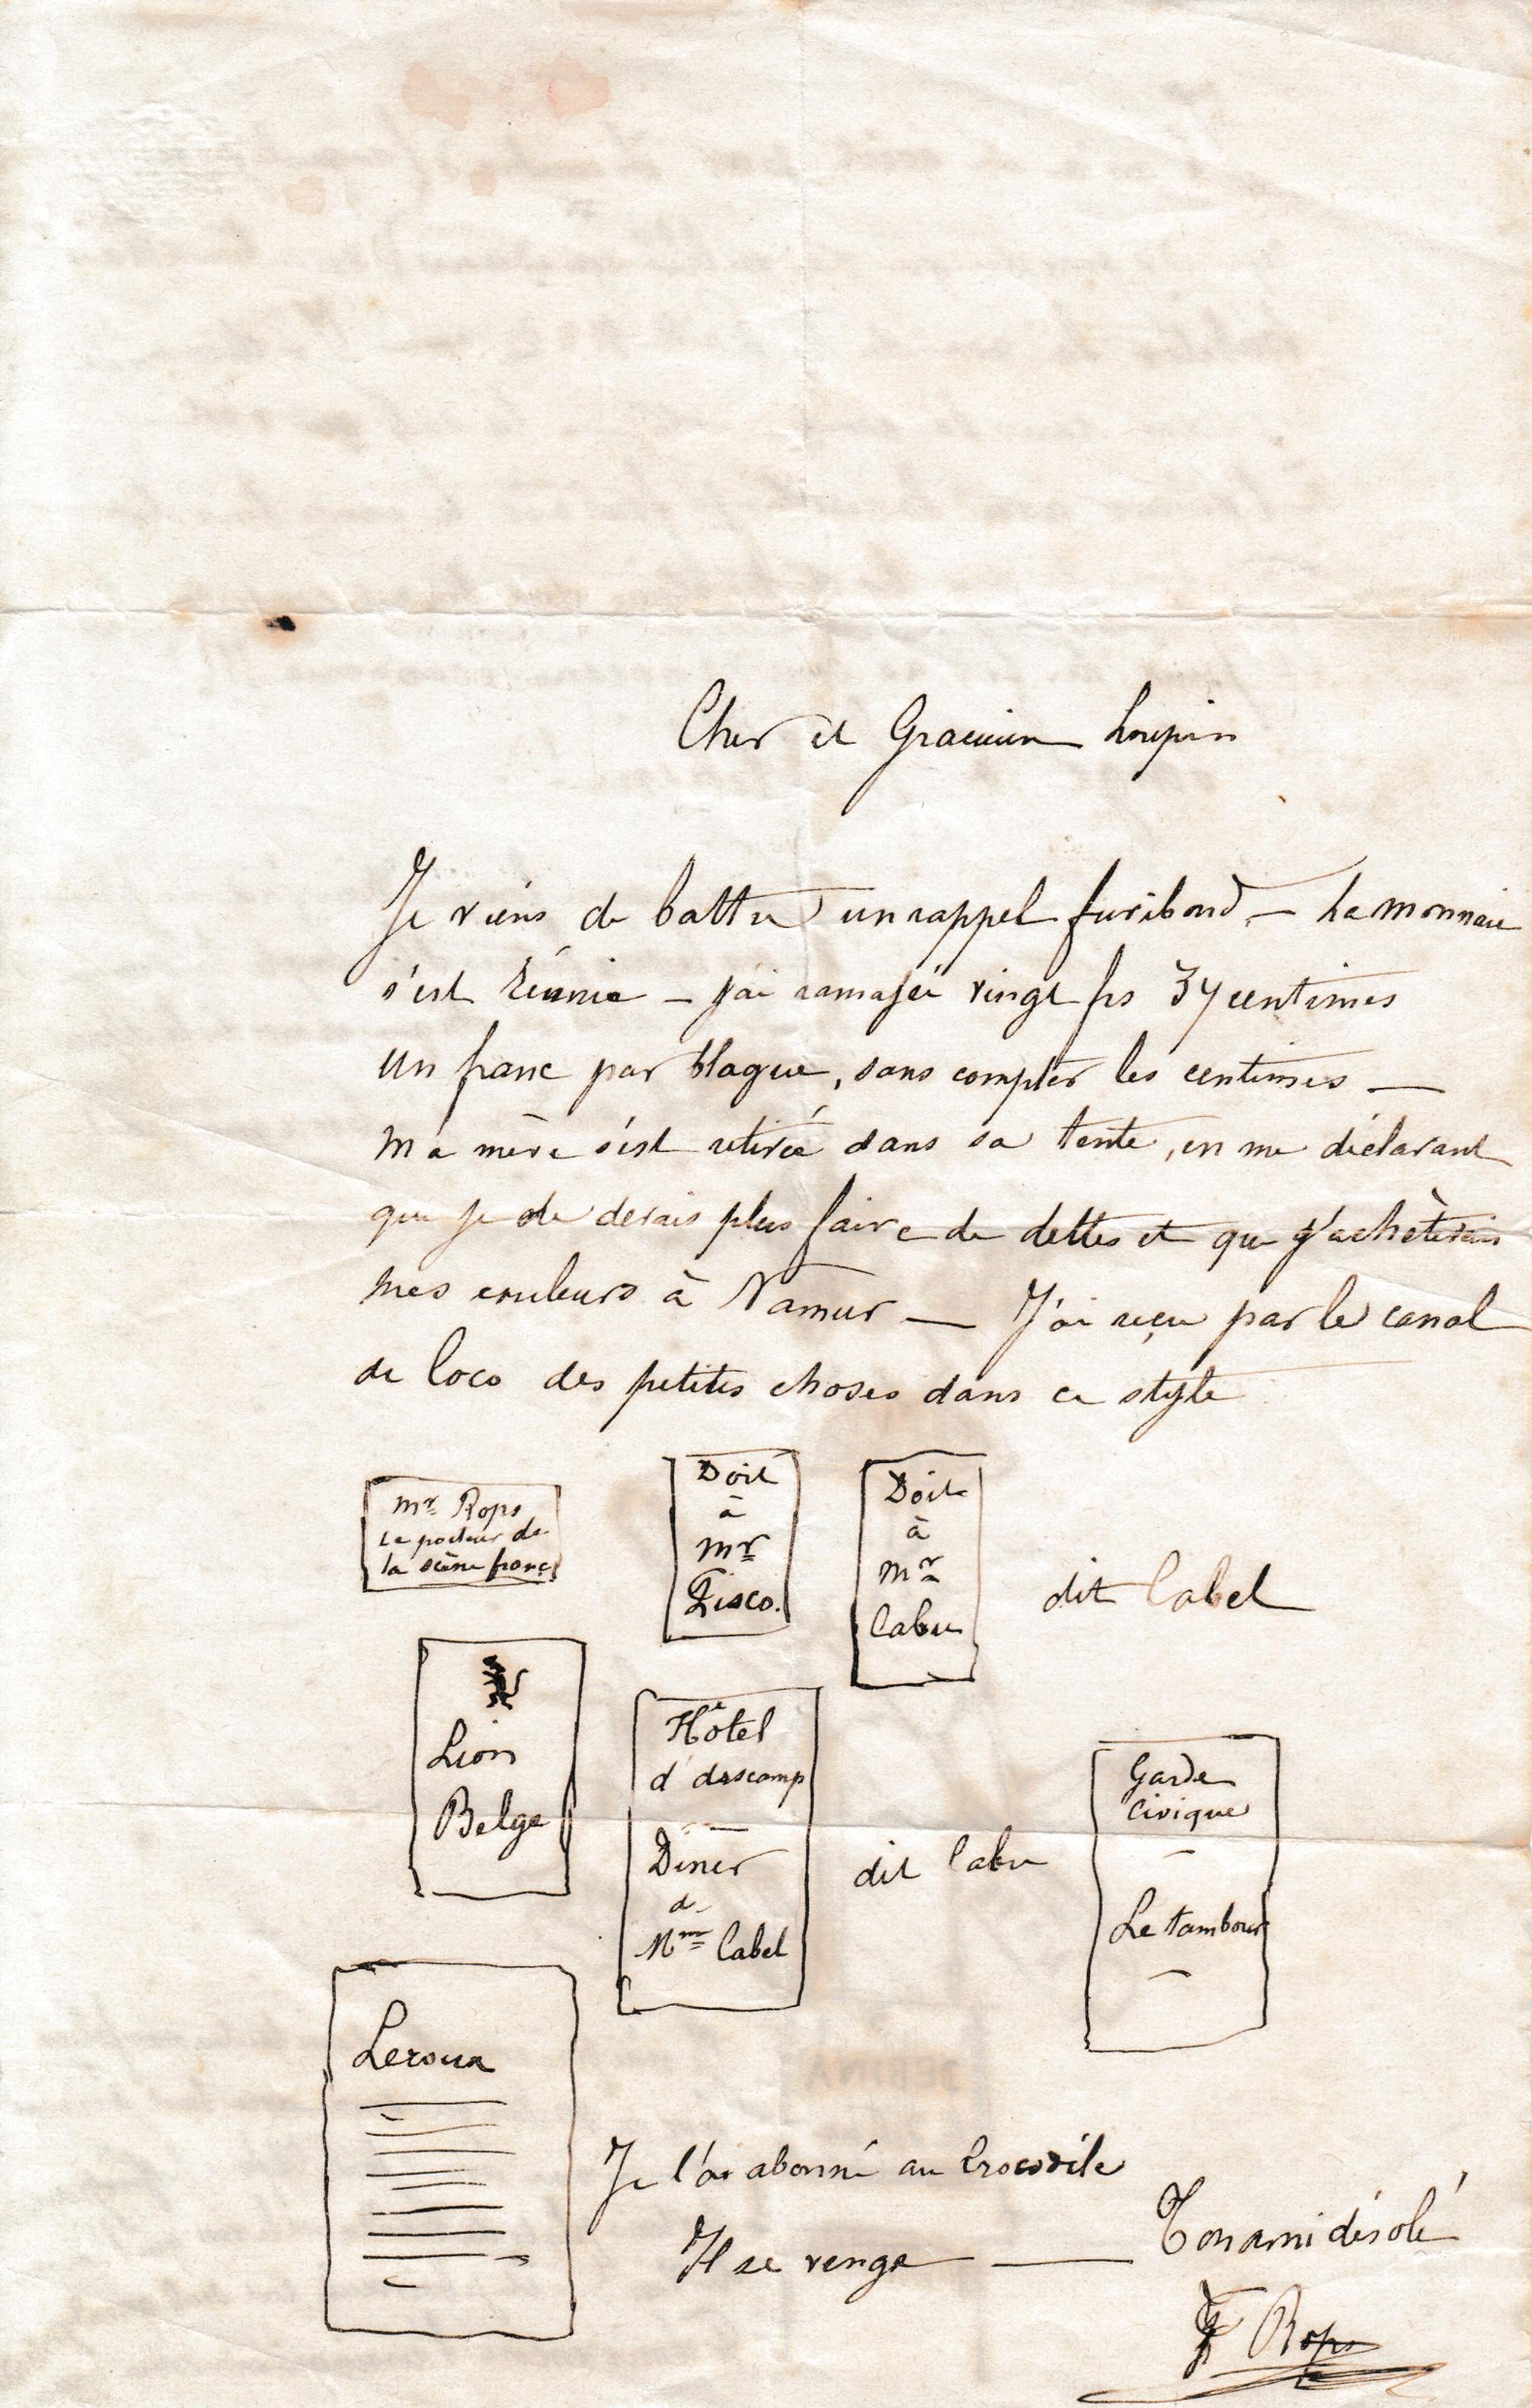 Cher et Gracieux Loupin
Je viens de battre un rappel furibond, — La monnaie
s'est réunie — j'ai ramassé vingt frs 37 centimes
un franc par blague, sans compter les centimes —
Ma mère s'est retirée dans sa tente, en me déclarant
que je de devais plus faire de dettes et que j'achèterais
mes couleurs à Namur — J'ai reçu par le canal
de Coco des petites choses dans ce style
Mr Rops
Le porteur de
la scène franç
Doit
à
Mr
Fisco.
Doit
à
Mr
Cabu
dit Cabel
Lion
Belge
Hôtel
d'dascamp
—
Diner
de
Mme Cabel
dit Cabu
Garde
Civique
—
Le tambour
—
Leroux
Je l'ai abonné au Crocodile
Il se venge —— Ton ami désolé
F Rops